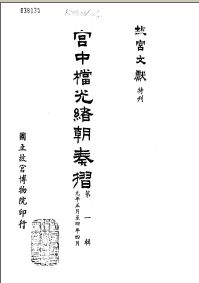 038135
故宮文獻
特刊
宮中檔光緒朝奏摺
第一輯
元年五月至四年四月
國立故宮博物院印行